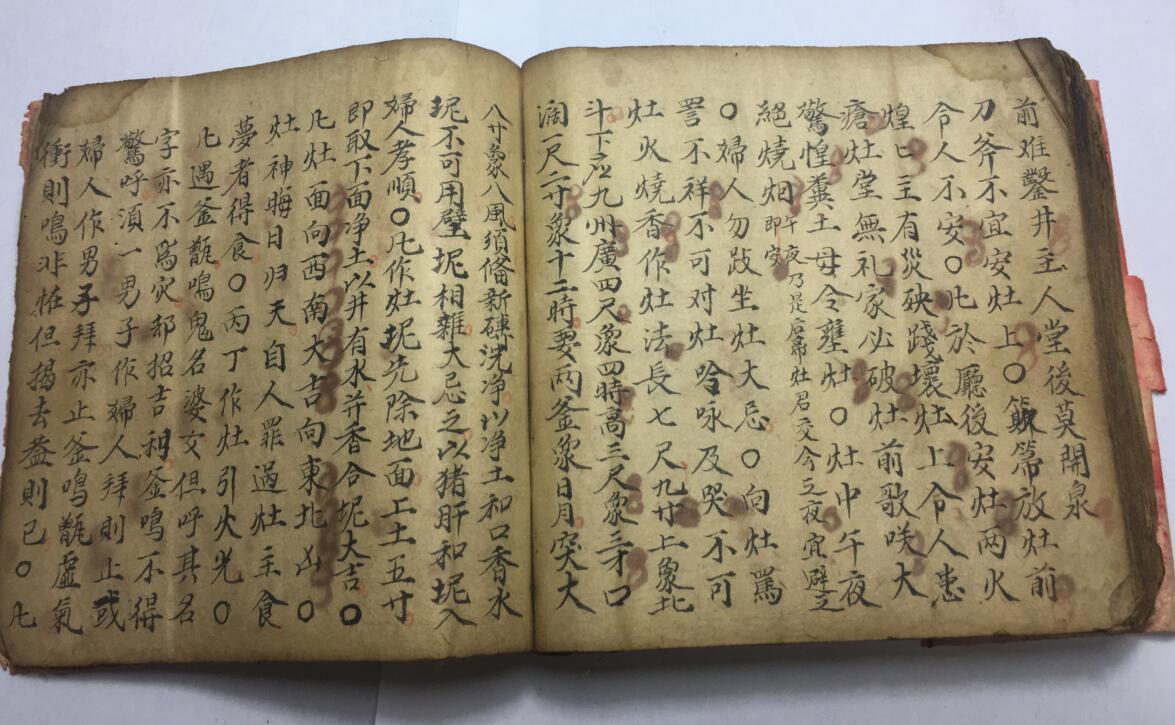 前难鑿井主人堂後莫開泉
刀斧不宜安灶上〇簸箒放灶前
令人不安〇凢於廳後安灶两火
煌〻主有災殃踐壞灶上令人患
瘡灶堂無礼家必破灶前歌咲大
驚惶糞土毋令壅灶〇灶中午夜
絕燒烟即安午夜乃是灶君交今之夜宜避之
〇婦人勿跂坐灶大忌〇向灶罵
詈不祥不可对灶吟咏及哭不可
灶火燒香作灶法長七尺九寸上象北
斗下应九州廣四尺象四時高三尺象三才口
濶一尺二寸象十二時要两釜象日月突大
八寸象八風須俻新磚洗净以净土和口香水
坭不可用壁坭相雜大忌之以猪肝和坭入
婦人孝順〇凢作灶坭先除地面工土五寸
即取下面净土以井有水并香合坭大吉〇
凢灶面向西南大吉向東北凶〇
灶神晦日归天自人罪過灶主食
夢者得食〇丙丁作灶引火光〇
凢遇釜甑鳴鬼名婆女但呼其名
字亦不為灾却招吉利釜鳴不得
驚呼湏一男子作婦人拜則止或
婦人作男子拜亦止釜鳴甑虚氣
衝則鳴非恠但揭去盖則已〇凢